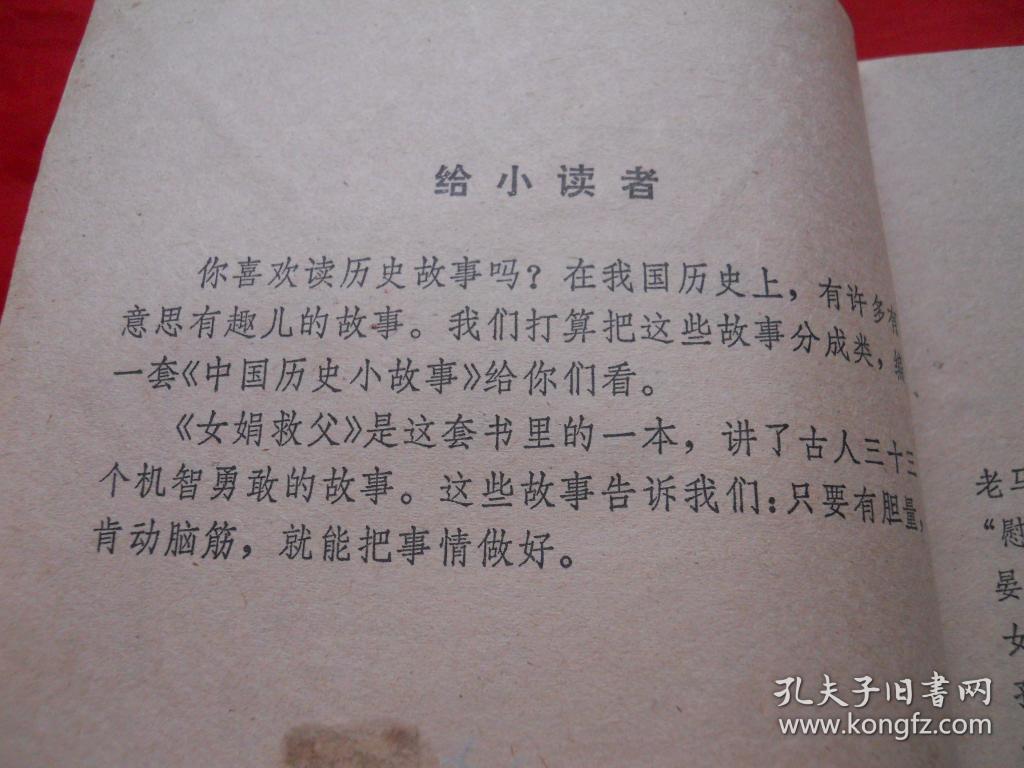 给小读者
你喜欢读历史故事吗？在我国历史上，有许多有
意思有趣儿的故事。我们打算把这些故事分成类，编
一套《中国历史小故事》给你们看。
《女娟救父》是这套书里的一本，讲了古人三十三
个机智勇敢的故事。这些故事告诉我们：只要有胆量，
肯动脑筋，就能把事情做好。
老马
“慰
晏
女
孔夫子旧书网
www.kongfz.com